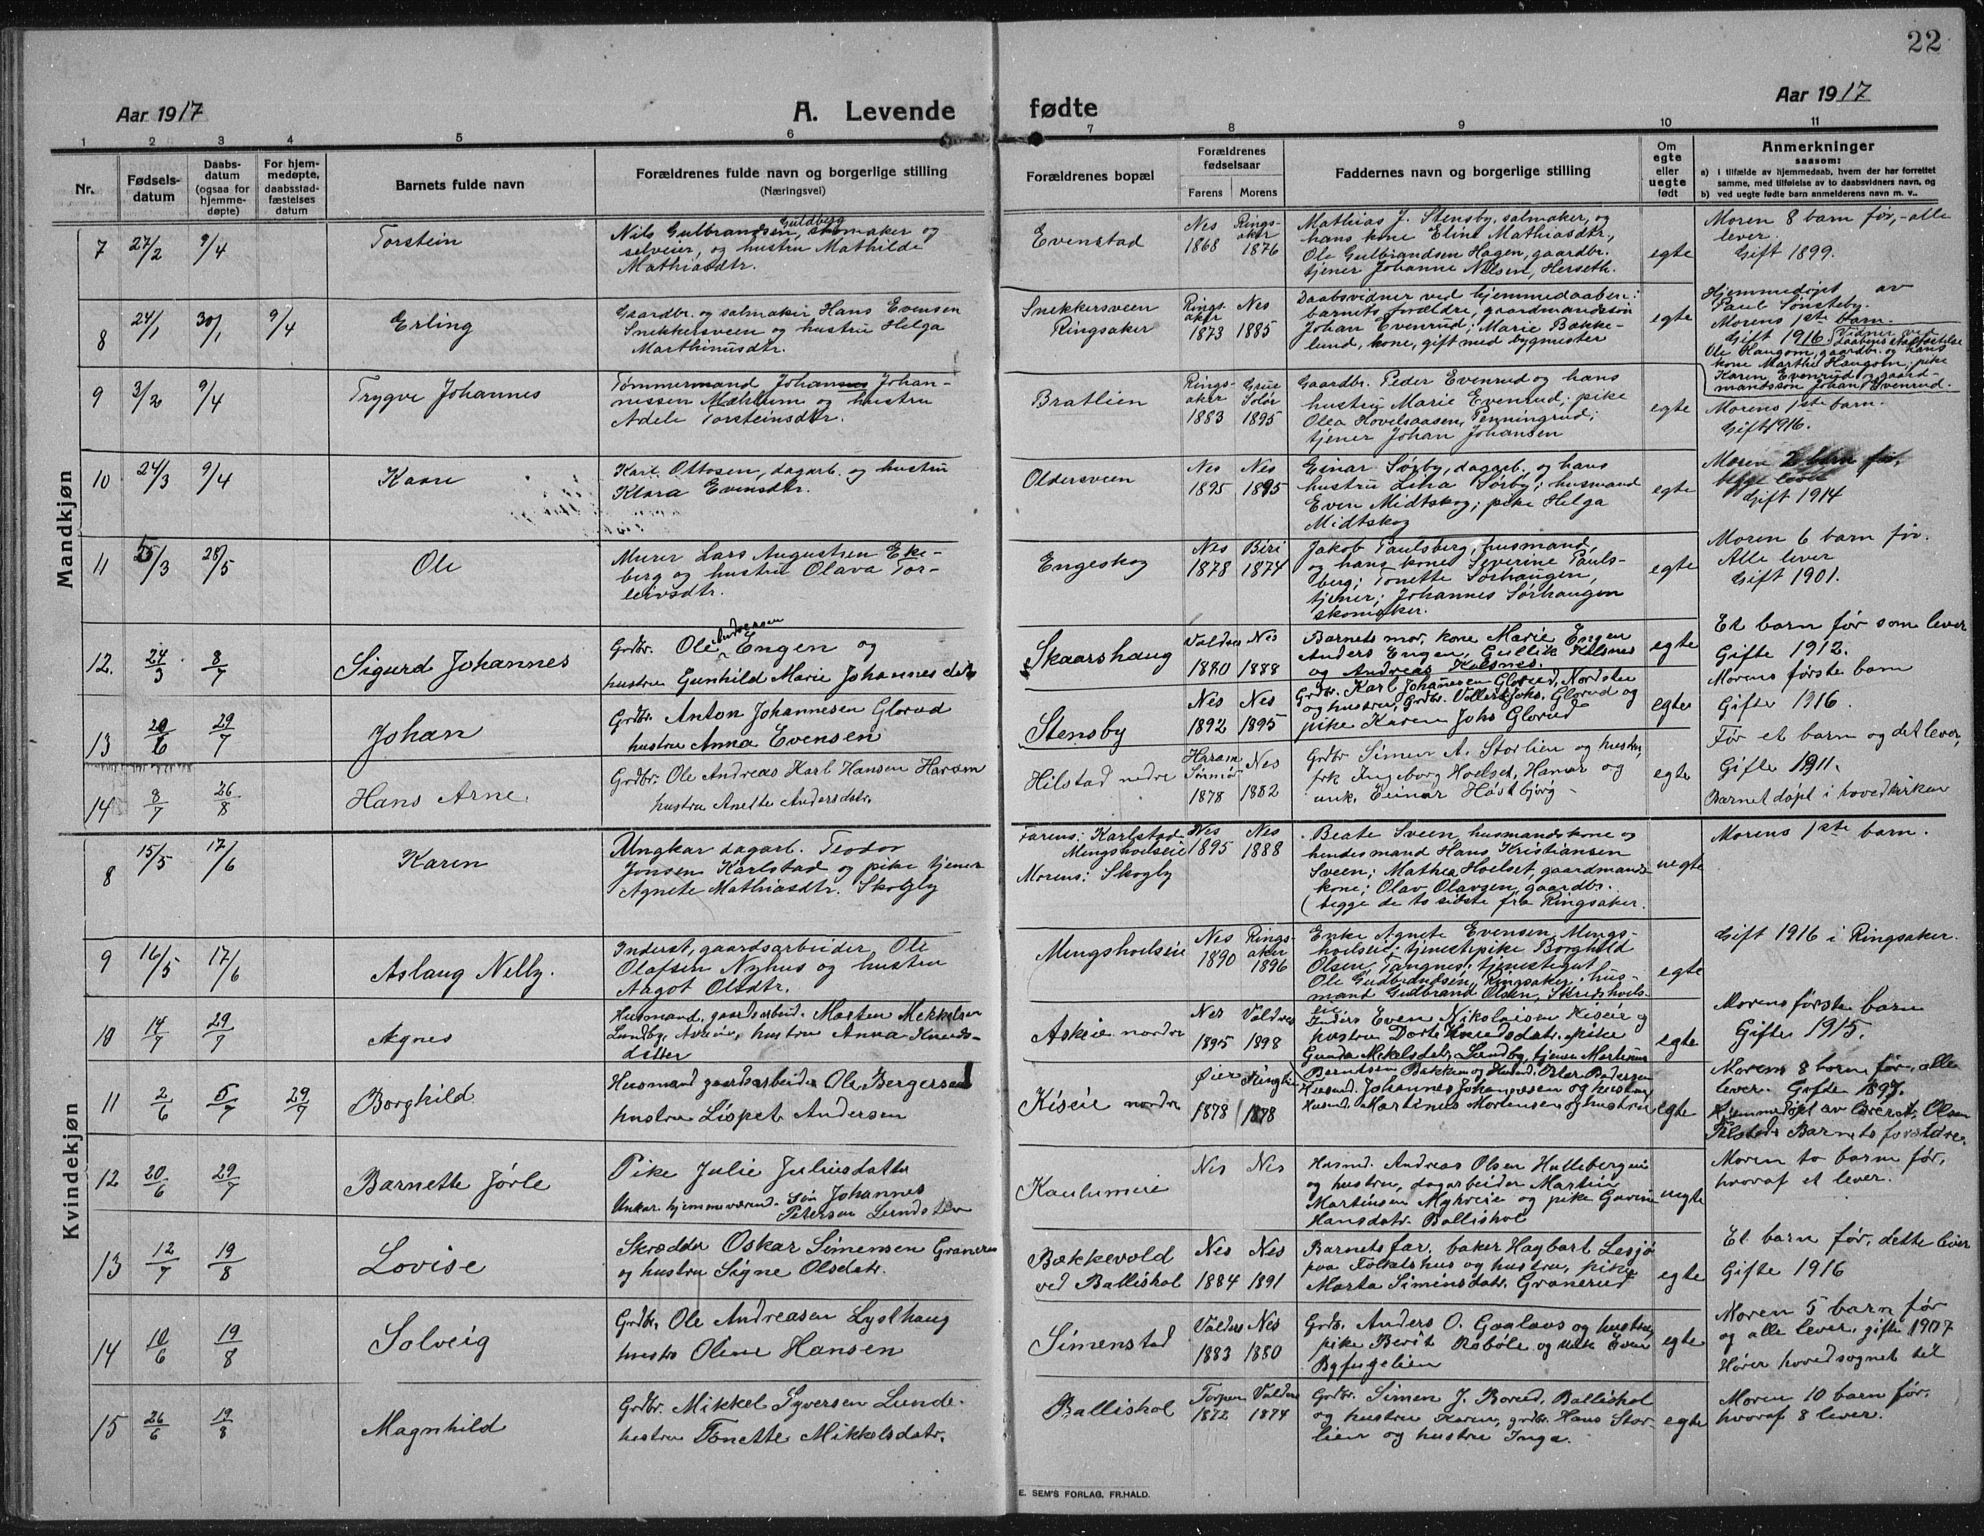 22
Aar 1917
A. Levende fødte
Aar 1917
1 2 3 4 5 6 7 8 9 10 11
Nr.
Fødselsdatum
Daabsdatum (ogsaa for hjemmedøpte)
For hjemmedøpte, daabsstadfæstelses datum
Barnets fulde navn
Forældrenes fulde navn og borgerlige stilling
(Næringsvei)
Forældrenes bopæl
Forældrenes fødselsaar
Farens
Morens
Faddernes navn og borgerlige stilling
Om egte eller uegte født
Anmerkninger
saasom:
a) I tilfælde av hjemmedaab, hvem der har forrettet
samme, med tilføielse av to daabsvidners navn, og
b) ved uegte fødte barn anmelderens navn m. v..
Mandkjøn
7 27/2 9/4 Torstein
Nils Gulbrandsen Guldberg, salmaker og
selveier, og hustru Mathilde
Mathiasdtr.
Evenstad
Nes 1868
Ringsaker 1876
Mathias J. Stensby, salmaker, og
hans kone Eline Mathiasdtr.,
Ole Gulbrandsen Hagen, gaardbr.
tjener Johanne Nilsen, Herseth.
egte
Moren 8 barn før, - alle
lever.
Gift 1899.
8 24/1 30/1 9/4 Erling
Gaardbr. og salmaker Hans Evensen
Snekkersveen og hustru Helga
Marthinusdtr.
Snekkersveen
Ringsaker
Ringsaker 1873
Nes 1885
Daabsvidner ved hjemmedaaben:
barnets forældre, gaardmandssøn
Johan Evenrud; Marie Bækkelund, kone, gift med bygmester
egte
Hjemmedøpt av
Paul Sønsteby.
Morens 1ste barn.
Gift 1916
Vidner ved daabens stadfæstelse
Ole Haugom, gaardbr. og hans
kone Marthe Haugom, pike
Karen Evenrud og gaardmandssøn Johan Evenrud.
9 3/2 9/4 Trygve Johannes
Tømmermand Johannes Johannessen Mæhlum og hustru
Adele Torsteinsdtr.
Bratlien
Ringsaker 1883
Grue Solør 1895
Gaardbr. Peder Evenrud og hans
hustru Marie Evenrud; pike
Olea Hovelsaasen, Penningrud;
tjener Johan Johansen
egte
Morens 1ste barn.
Gift 1916.
10 24/3 9/4 Kaare
Karl Ottosen, dagarb. og hustru
Klara Evensdtr.
Oldersveen
Nes 1895
Nes 1895
Einar Sørby, dagarb. og hans
hustru Lina Sørby; husmand
Even Midtskog; pike Helga
Midtskog
egte
Moren
Gift 1914
11 /3 28/5 Ole
Murer Lars Augustsen Ekeberg og hustru Olava Torleivsdtr.
Engeskog
Nes 1878
Biri 1874
Jakob Paulsberg, husmand,
og hans kone Severine Paulsberg; Tonette Sørhaugen,
tjener; Johannes Sørhaugen
skomaker.
egte
Moren 6 barn før.
Alle lever
Gift 1901.
12. 24/3 8/7 Sigurd Johannes
Grdbr. Ole Andersen Engen og
hustru Gunhild Marie Johannesdtr
Skaarshaug
Valdres 1880
Nes 1888
Barnets mor, kone Marie Engen
Anders Engen, Gullik Kilsnes
og Andreas Kilsnes.
egte
Et barn før som lever
Gifte 1912.
13 20/6 29/7 Johan
Grdbr. Anton Johannesen Glorud
hustru Anna Evensen
Stensby
Nes 1892
Nes 1895
Grdbr. Karl Johannesen Glorud, Nordstu
og hustru, Grdbr. Johs. Glorud og
pike Karen Johs Glorud
egte
Morens første barn
Gifte 1916.
14 8/7 26/8 Hans Arne.
Grdbr. Ole Andreas Karl Hansen Haram
hustru Anette Andersdatr.
Hilstad nedre
Haram Sønmør 1878
Nes 1882
Grdbr Simen A. Storlien og hustru,
frk Ingeborg Hoelset, Hamar og
unk. Einar Høstbjørg -
egte
Før et barn og det lever,
Gifte 1911.
Barnet døpt i hovedkirken
Kvindekjøn
8 15/5 17/6 Karen
Ungkar dagarb. Teodor
Jonsen Karlstad og pike tjener
Agnete Mathiasdtr. Skogby
Farens: Karlstad
Mengshoelseie
Morens: Skogby
Nes 1895
Nes 1888
Beate Sveen, husmandskone og
hendes mand Hans Kristiansen
Sveen; Mathea Hoelset, gaardmandskone; Olav Olavsen, gaardbr.
(begge de to sidste fra Ringsaker.
uegte
Morens 1ste barn.
9 16/5 17/6 Aslaug Nelly.
Inderst, gaardsarbeider Ole
Olafsen Nyhus og hustru
Aagot Olsdtr.
Mengshoelseie
Nes 1890
Ringsaker 1896
Enke Agnete Evensen, Mengshoelseie; tjenestepike Borghild
Olsen, Tangnes; tjenestegut
Ole Gudbrandsen, Ringsaker; husmand Gudbrand Olsen, Skredshoelseie
egte
Gift 1916 i Ringsaker.
10 14/7 29/7 Agnes
Husmand, gaardsarbeid. Morten Mekkelsen
Lundby, Askeie, hustru Anna Knudsdatter
Askeie nordre
Nes 1895
Valdres 1898
Inders Even Nikolaisen Kiseie og
hustru Dorte Knudsdatr, pike
Gunda Mikelsdatr, Lundby, tjener Martinus
egte
Morens første barn
Gifte 1915.
11 2/6 5/7 29/7 Borghild.
Husmand gaardsarbeider Ole Bergersen
hustru Lispet Andersen
Kiseie nordre
Øier 1878
1878
Berntsen Bakken og Husmd. Peter Pedersen
Husmd. Johannes Johannesen og hustru
Husmd. Martinus Mortensen og hustru
egte
Morens 8 barn før, alle
lever. Gifte 1897.
Hjemmedøpt av Berent Olsen
Barnets forældre.
12 20/6 29/7 Barnette Jørle
Pike Julie Juliusdatter
Unkar. hjemmeværend. søn Johannes
Petersen Lundsteen
Kaulumeie
Nes
Nes
Husmd. Andreas Olsen Hulleberg
og hustru, dagarbeider Martin
Martinsen Myhreie og pike
Hansdatr. Ballishol
uegte
Moren to barn før,
hvoraf et lever.
13 12/7 19/8 Lovise
Skrædder Oskar Simensen Granerud
og hustru Signe Olsdatr.
Bækkevold
ved Ballishol
Nes 1884
Nes 1891
Barnets far, baker Hagbart Lesjø
paa Folkets hus og hustru, pike
Marta Simensdatr. Granerud
egte
Et barn før, dette lever
Gifte 1916
14 10/6 19/8 Solveig
Grdbr. Ole Andreasen Lyshaug
hustru Oline Hansen
Simenstad
Valdres 1883
Nes 1880
Grdbr. Anders O. Gaalaas og hustru,
pike Berit Robøle og unk Even
Byfuglien
egte
Moren 5 barn før
og alle lever, gifte 1907
Hører hovedsognet til
15 26/6 19/8 Magnhild
Grdbr. Mikkel Syversen Lunde.
hustru Tonette Mikkelsdatr.
Ballishol
Torpen 1872
Valdres 1874
Grdbr. Simen J. Borud, Ballishol
og hustru Karen, grdbr. Hans Storlien og hustru Inga.
egte
Moren 10 barn før.
hvoraf 8 lever.
E. SEM'S FORLAG, FR.HALD.